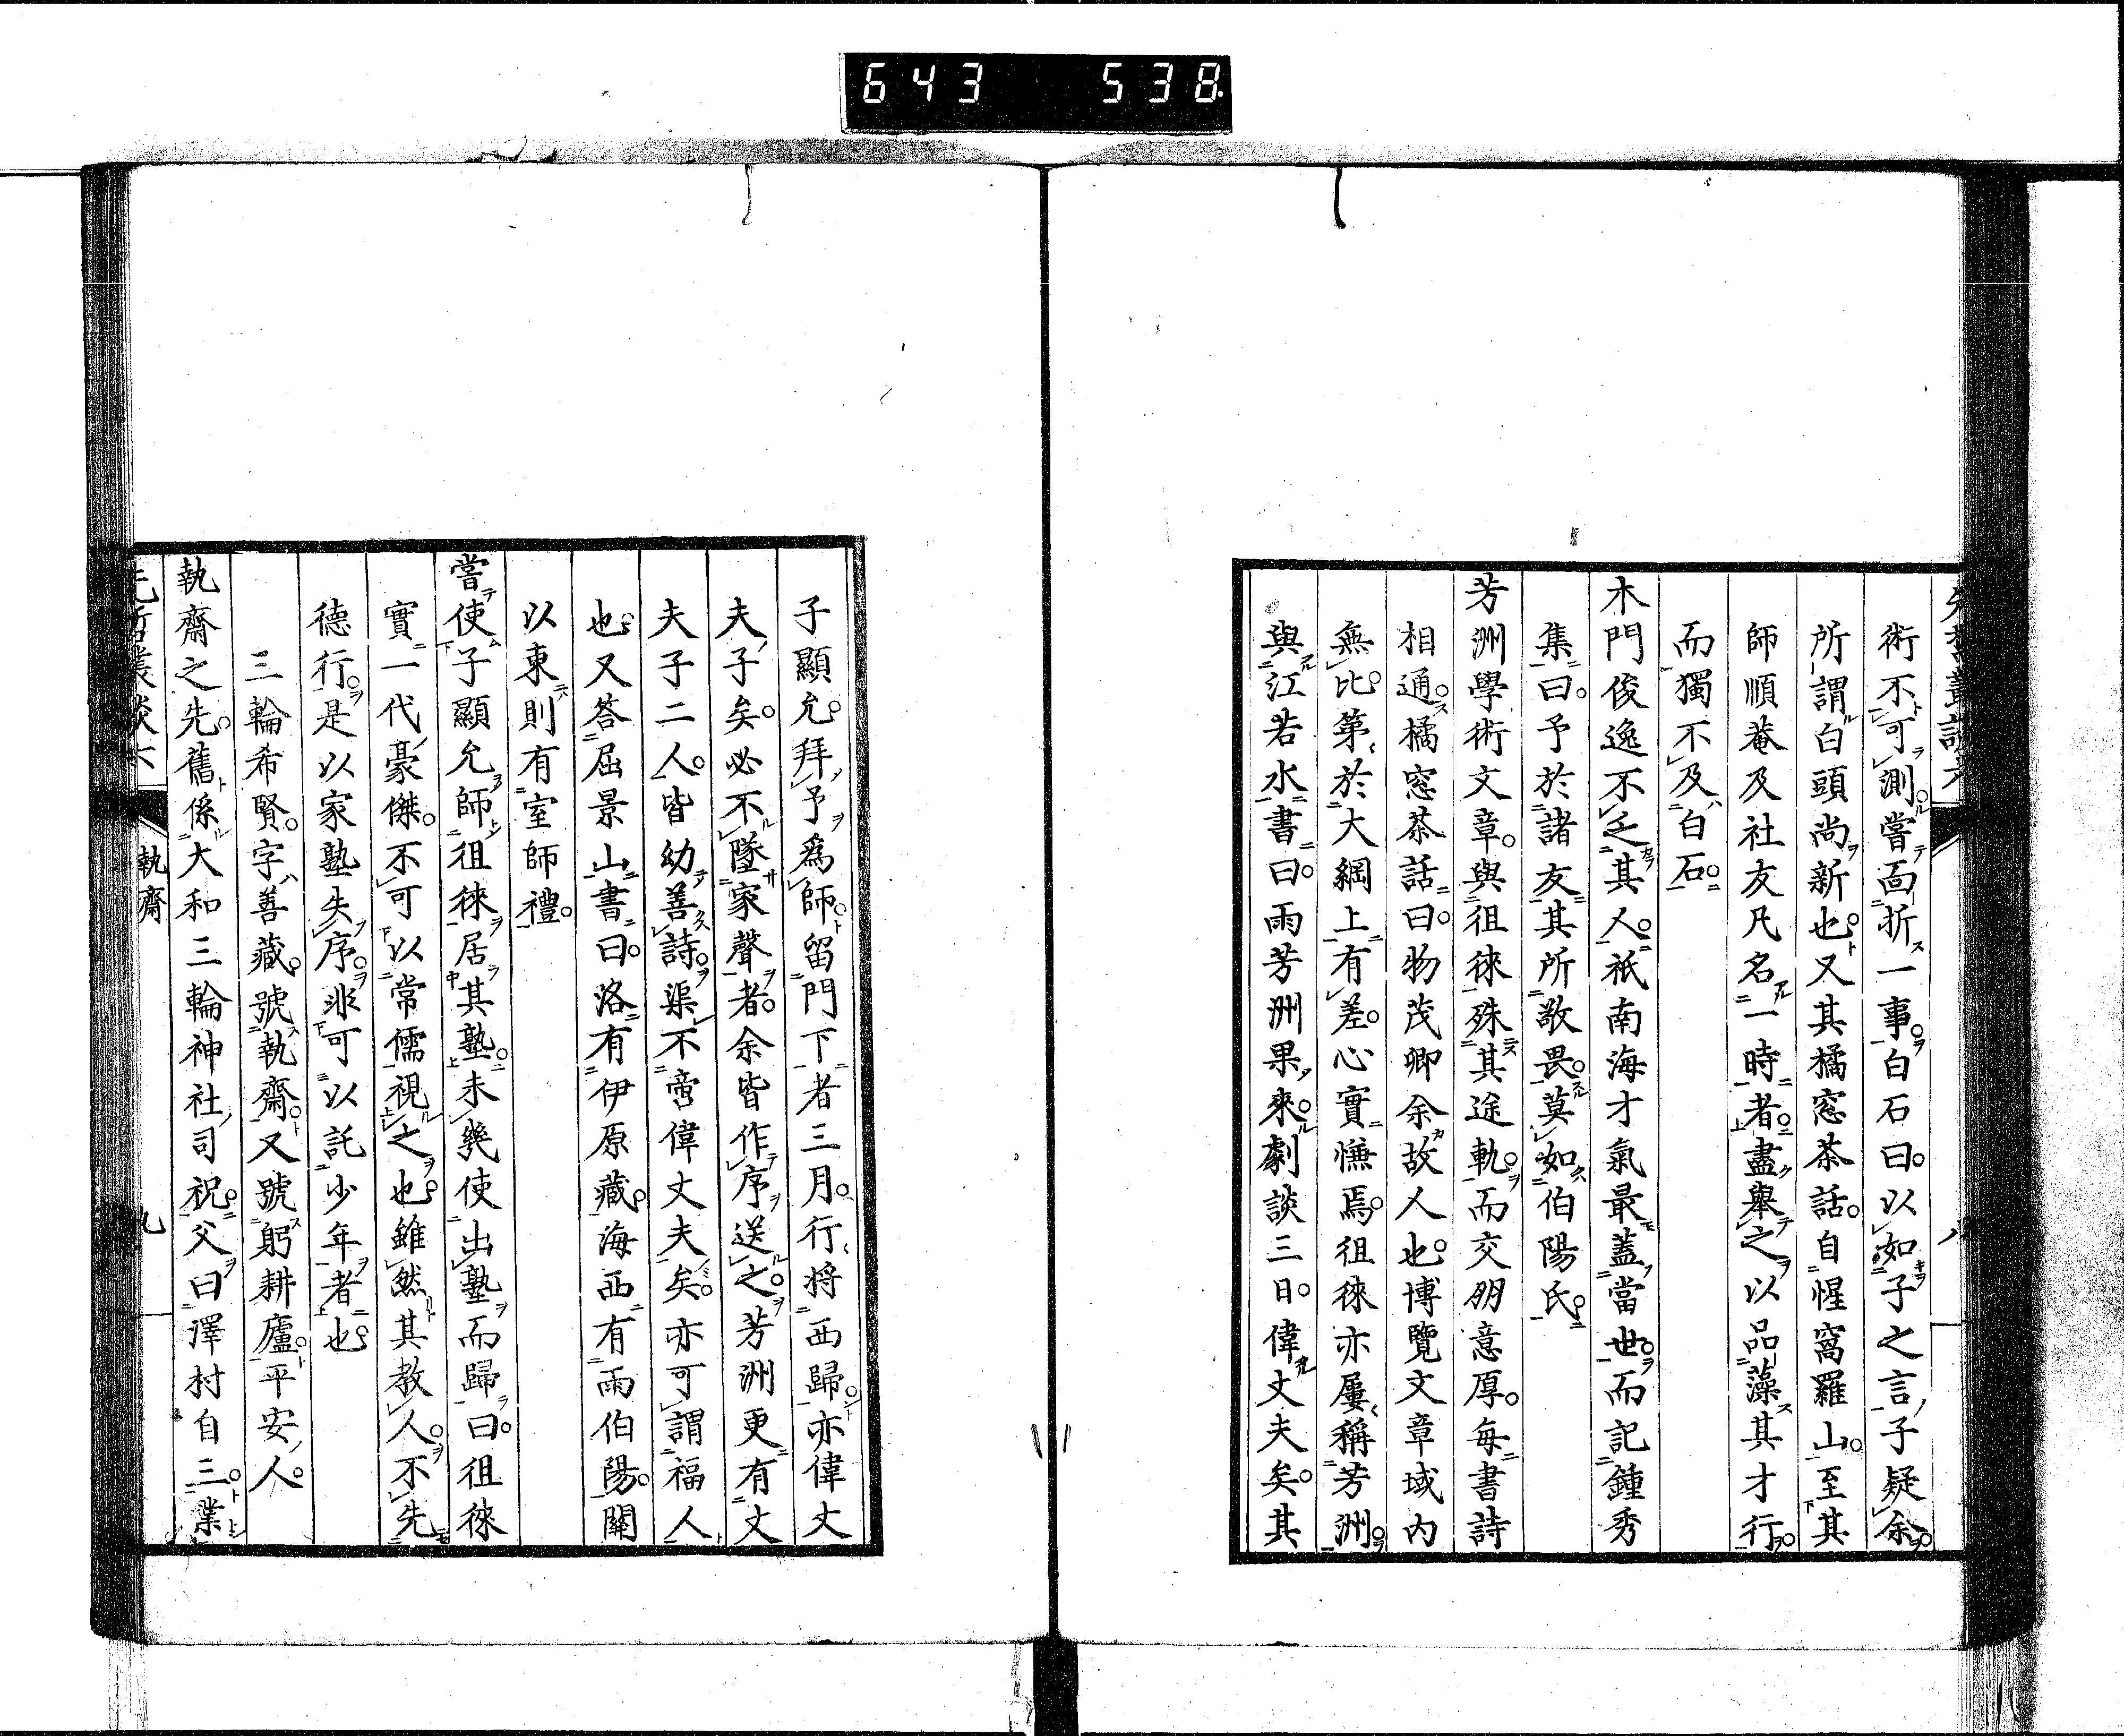 643 538
先哲叢談六 八
術不可測嘗面折一事白石曰以如子之言子疑余
所謂白頭尚新也又其橘窓茶話自惺窩羅山至其
師順菴及社友凡名一時者盡舉之以品藻其才行
而獨不及白石
木門俊逸不乏其人祇南海才氣最蓋當世而記鍾秀
集曰予於諸友其所敬畏莫如伯陽氏
芳洲學術文章與徂徠殊其途軌而交朋意厚每書詩
相通橘窓茶話曰物茂卿余故人也博覽文章域內
無比第於大綱上有差心實慊焉徂徠亦屢稱芳洲
與江若水書曰雨芳洲果來劇談三日偉丈夫矣其
子顯允拜予爲師留門下者三月行將西歸亦偉丈
夫子矣必不墜家聲者余皆作序送之芳洲更有丈
夫子二人皆幼善詩渠不啻偉丈夫矣亦可謂福人
也又答屈景山書曰洛有伊原藏海西有雨伯陽關
以東則有室師禮
嘗使子顯允師徂徠居其塾未幾使出塾而歸曰徂徠
實一代豪傑不可以常儒視之也雖然其教人不先
德行是以家塾失序非可以託少年者也
三輪希賢字善藏號執齋又號躬耕廬平安人
執齋之先舊係大和三輪神社司祝父曰澤村自三業
先哲叢談六 執齋 九